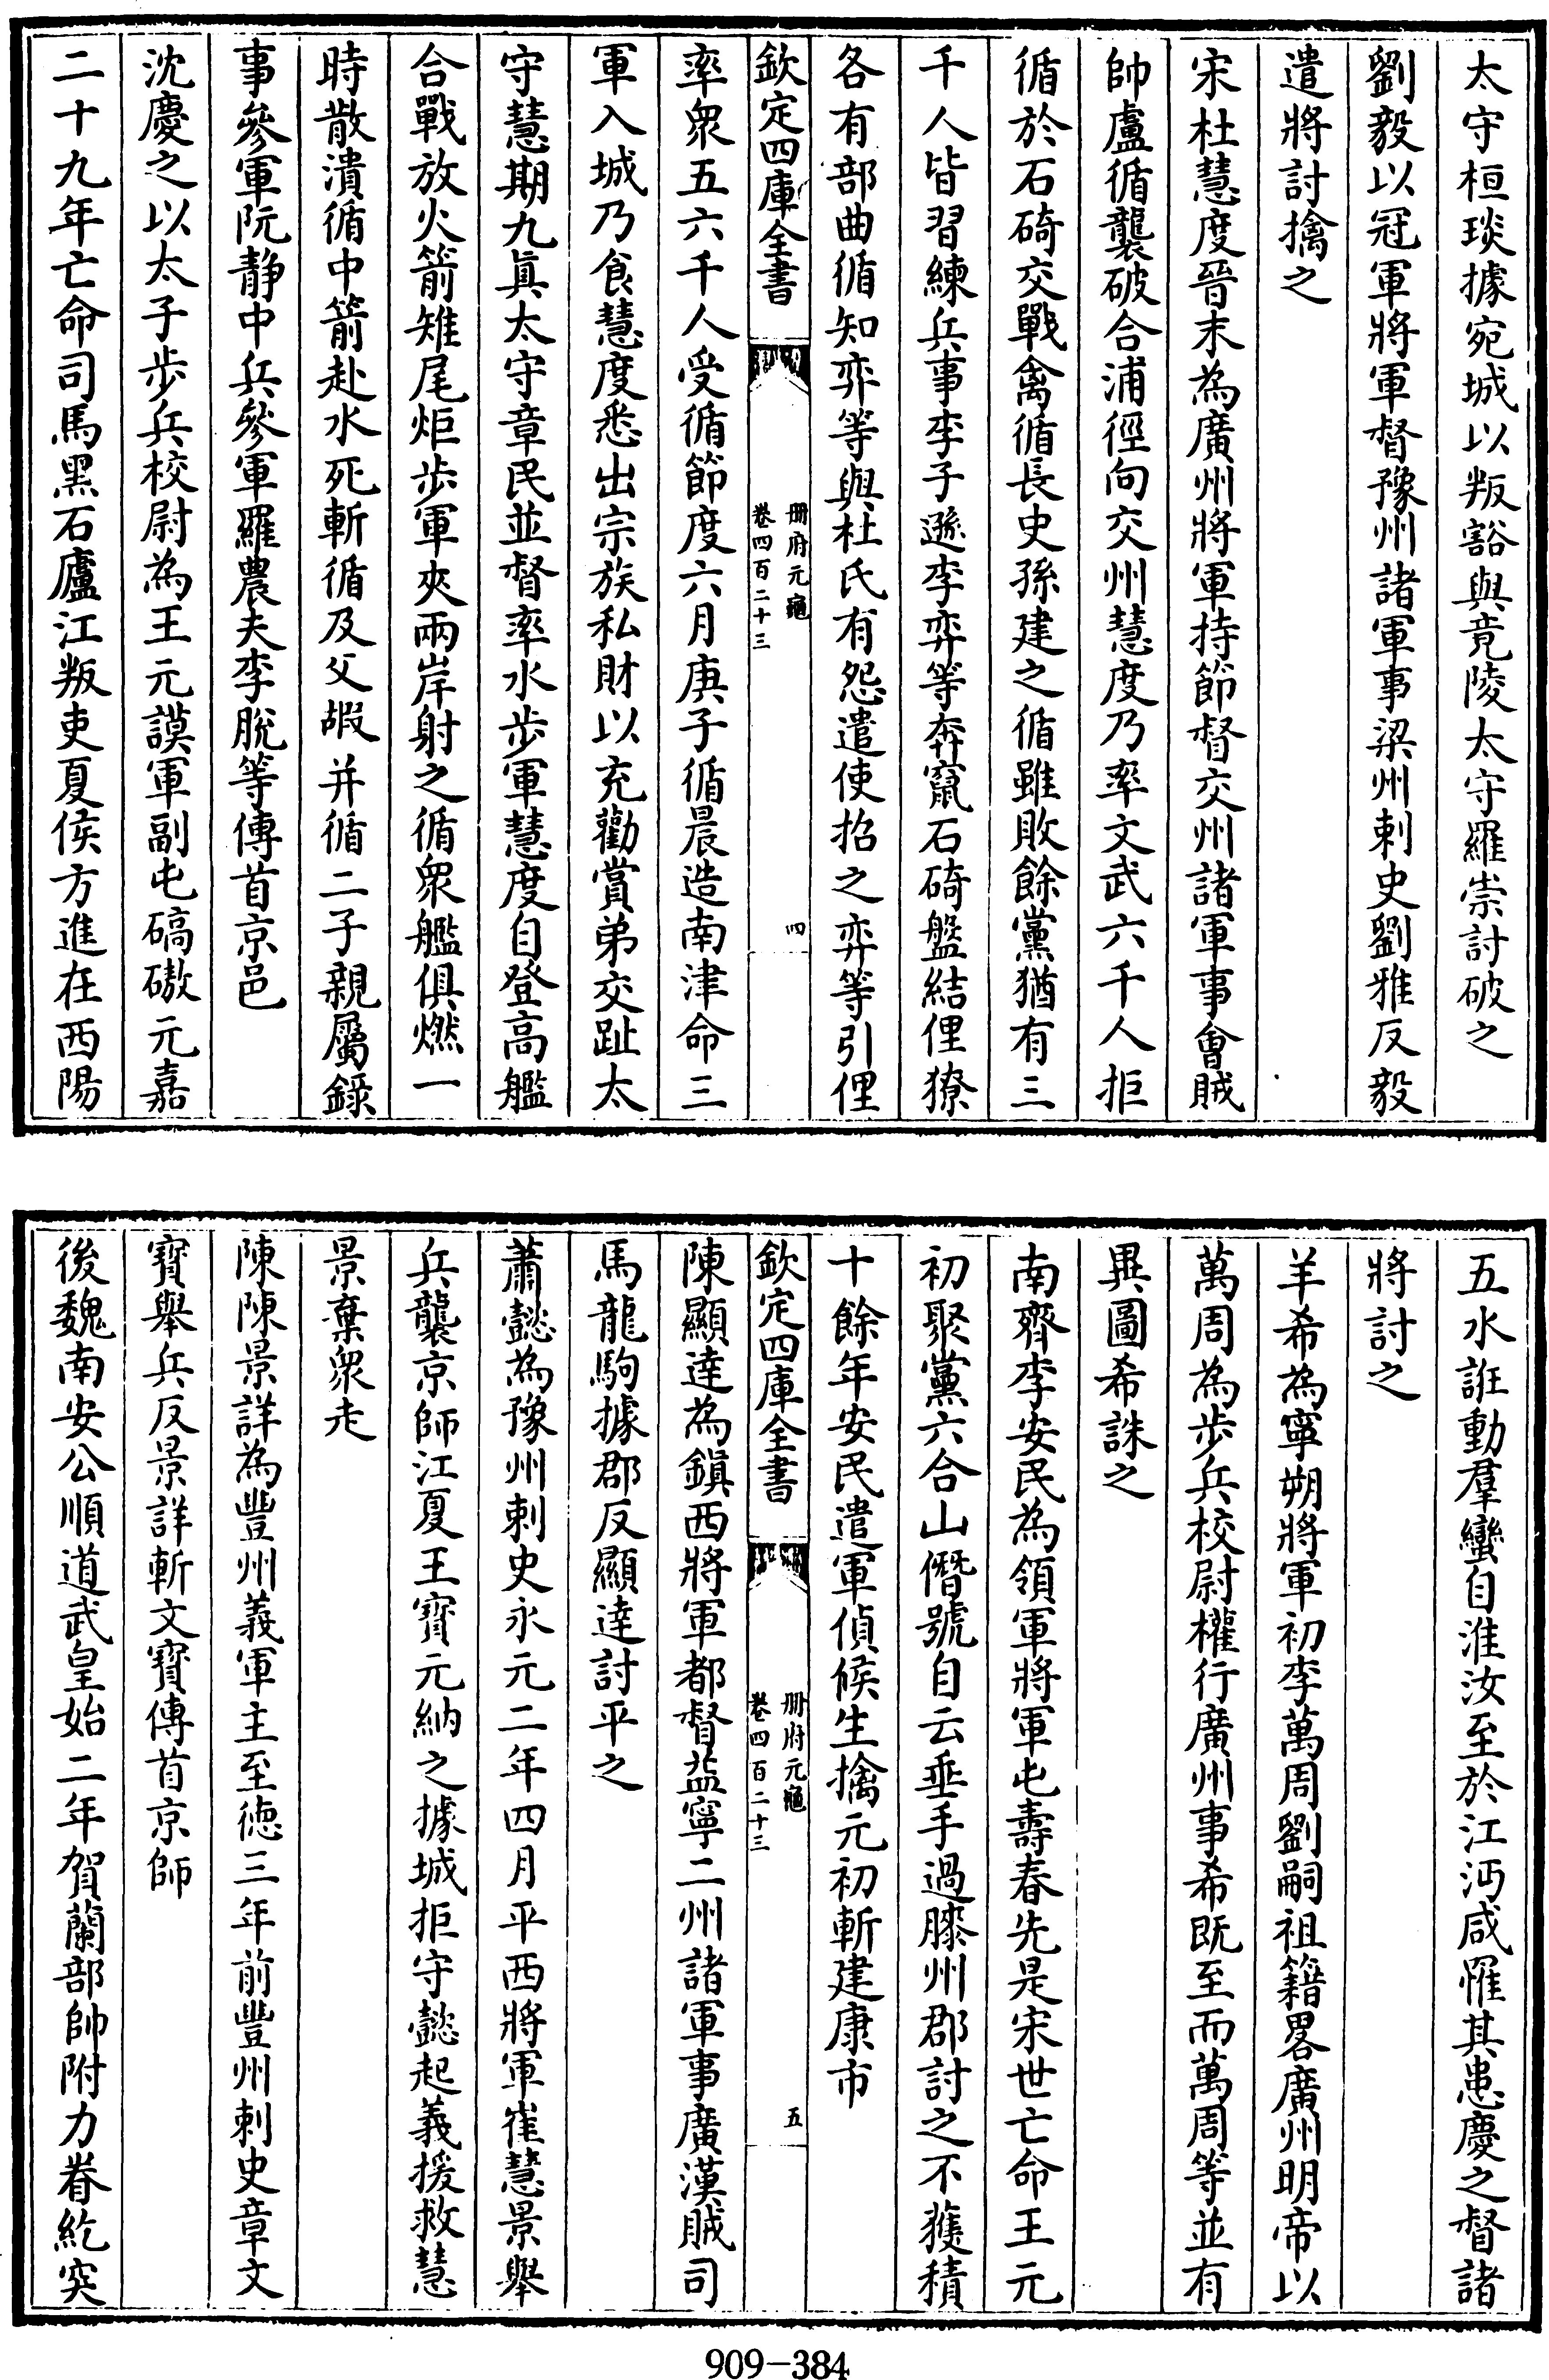 太守桓琰據宛城以叛豁與竟陵太守羅崇討破之
劉毅以冠軍將軍督豫州諸軍事梁州刺史劉雅反毅
遣將討擒之
宋杜慧度晉末為廣州將軍持節督交州諸軍事會賊
帥盧循襲破合浦徑向交州慧度乃率文武六千人拒
循於石碕交戰禽循長史孫建之循雖敗餘黨猶有三
千人皆習練兵事李子遜李弈等奔竄石碕盤結俚獠
各有部曲循知弈等與杜氏有怨遣使招之弈等引俚
欽定四庫全書
冊府元龜
卷四百二十三
四
率衆五六千人受循節度六月庚子循晨造南津命三
軍入城乃食慧度悉出宗族私財以充勸賞弟交趾太
守慧期九真太守章民並督率水步軍慧度自登高艦
合戰放火箭雉尾炬步軍夾兩岸射之循衆艦俱燃一
時散潰循中箭赴水死斬循及父嘏并循二子親屬錄
事參軍阮静中兵參軍羅農夫李脫等傳首京邑
沈慶之以太子步兵校尉為王元謨軍副屯碻磝元嘉
二十九年亡命司馬黑石廬江叛吏夏侯方進在西陽
五水誑動羣蠻自淮汝至於江沔咸罹其患慶之督諸
將討之
羊希為寧朔將軍初李萬周劉嗣祖籍畧廣州明帝以
萬周為步兵校尉權行廣州事希既至而萬周等並有
異圖希誅之
南齊李安民為領軍將軍屯壽春先是宋世亡命王元
初聚黨六合山僭號自云垂手過膝州郡討之不獲積
十餘年安民遣軍偵候生擒元初斬建康市
欽定四庫全書
冊府元龜
卷四百二十三
五
陳顯達為鎮西將軍都督益寧二州諸軍事廣漢賊司
馬龍駒據郡反顯達討平之
蕭懿為豫州刺史永元二年四月平西將軍崔慧景舉
兵襲京師江夏王寶元納之據城拒守懿起義援救慧
景棄衆走
陳陳景詳為豐州義軍主至徳三年前豐州刺史章文
寶舉兵反景詳斬文寶傳首京師
後魏南安公順道武皇始二年賀蘭部帥附力眷紇突
909-384